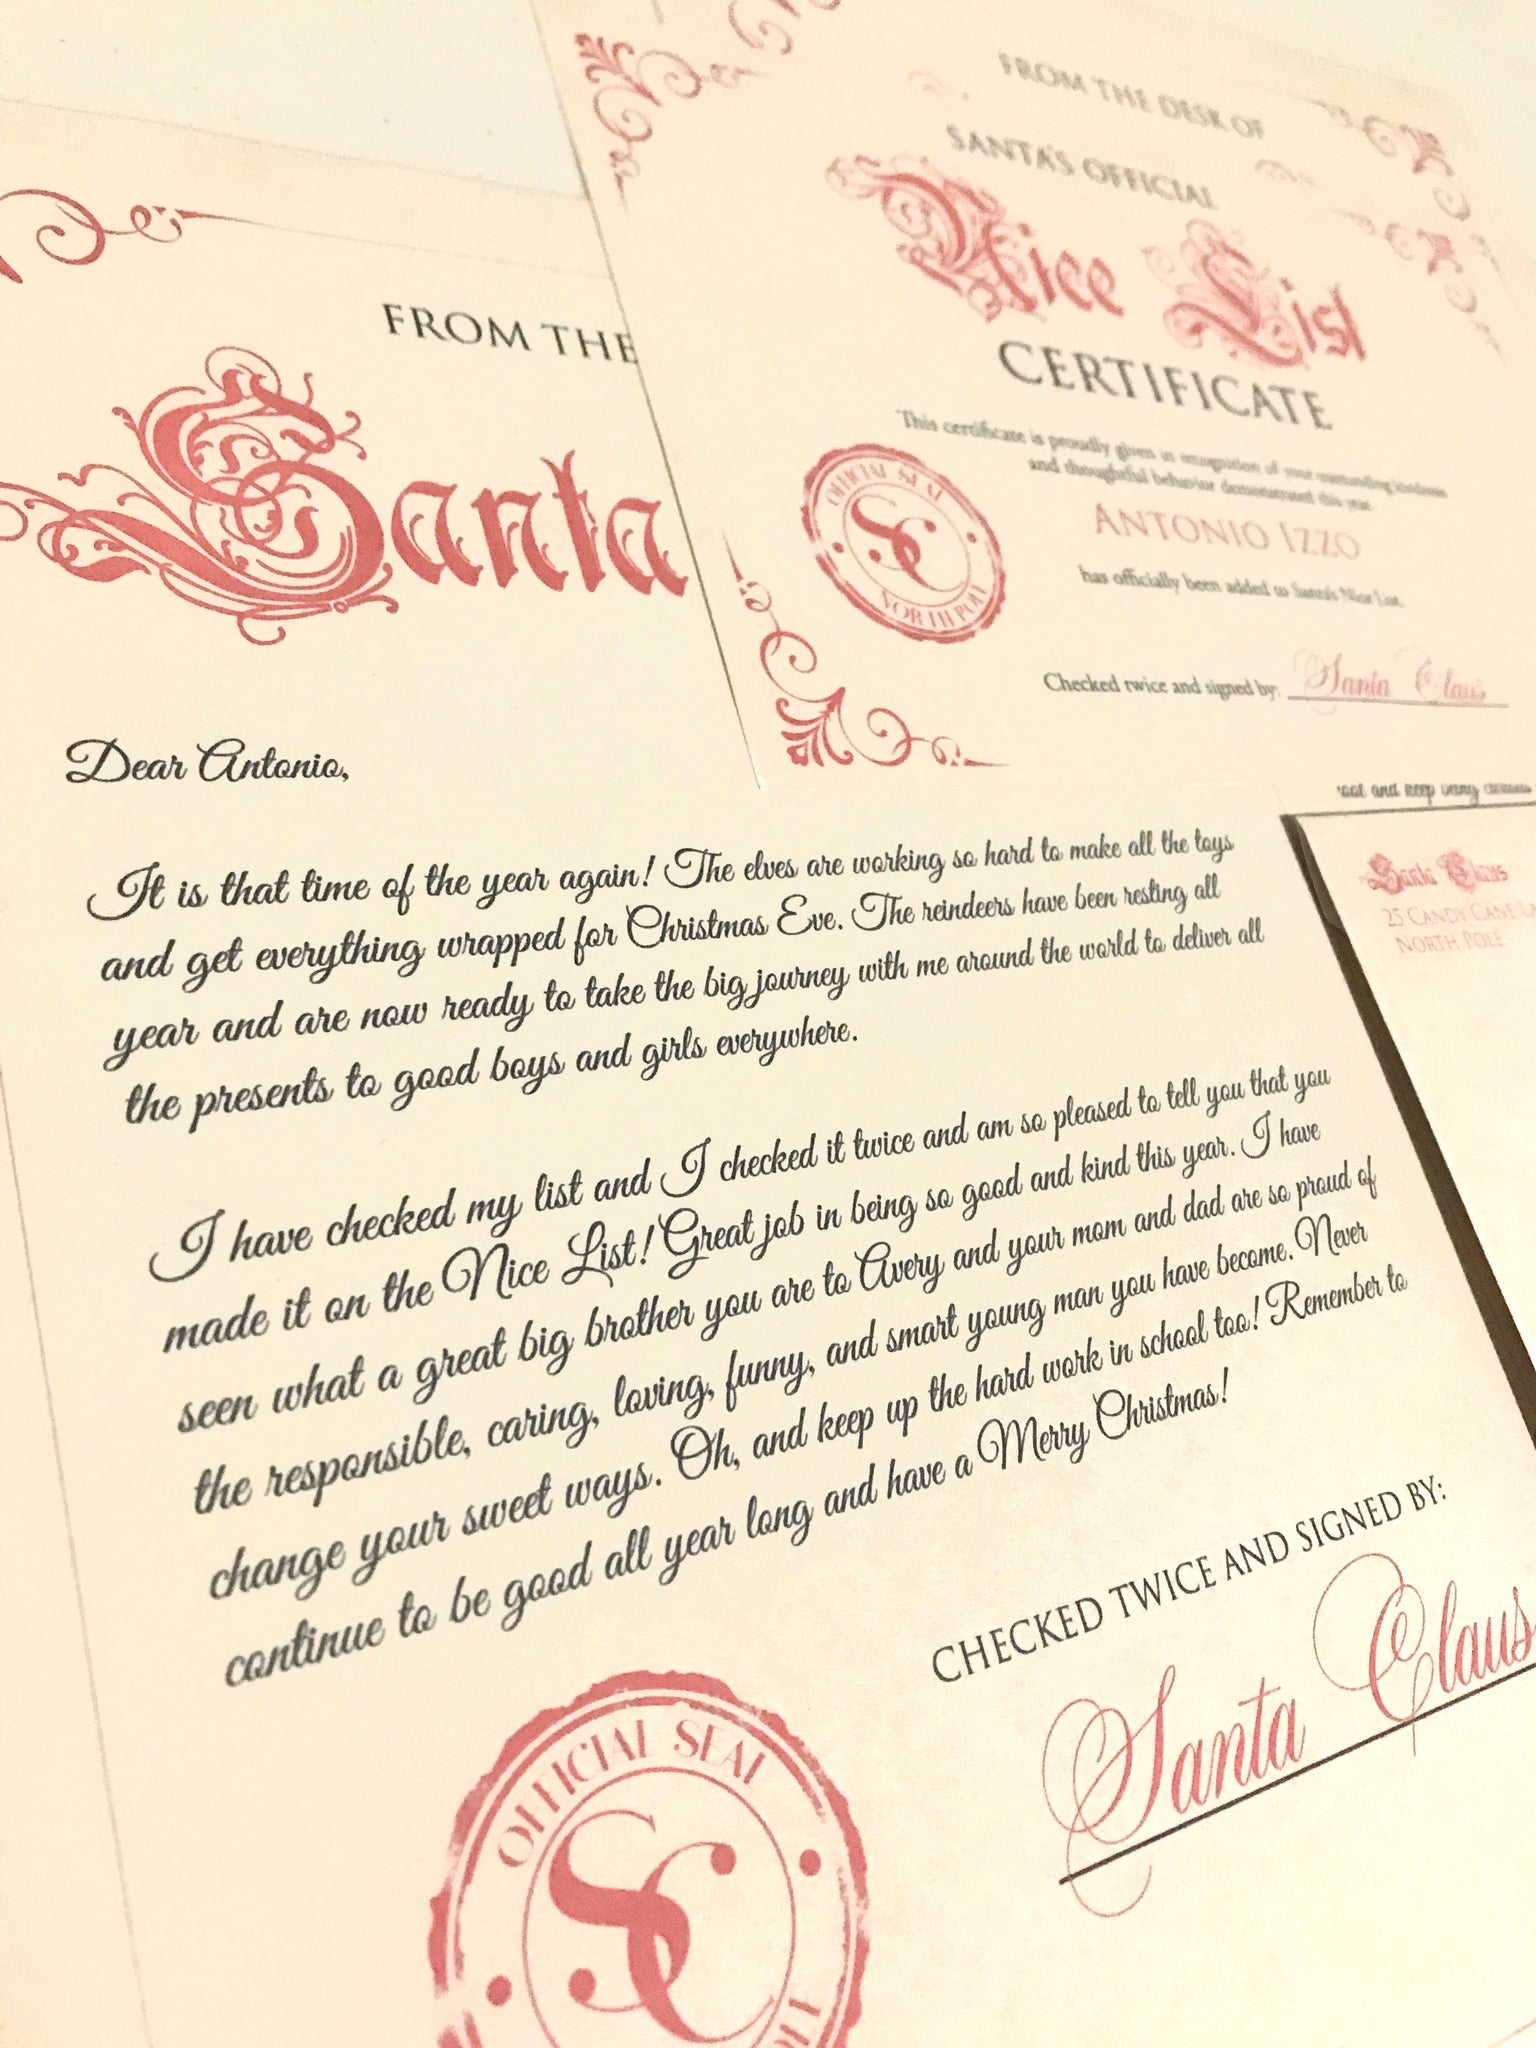 FROM THE DESK OF
SANTA'S OFFICIAL
Nice List
CERTIFICATE
This certificate is proudly given in recognition of your outstanding kindness
and thoughtful behavior demonstrated this year.
ANTONIO IZZO
has officially been added to Santa's Nice List.
Checked twice and signed by: Santa Claus
OFFICIAL SEAL
SC
NORTH POLE
FROM THE
Santa
Dear Antonio,
It is that time of the year again! The elves are working so hard to make all the toys
and get everything wrapped for Christmas Eve. The reindeers have been resting all
year and are now ready to take the big journey with me around the world to deliver all
the presents to good boys and girls everywhere.
I have checked my list and I checked it twice and am so pleased to tell you that you
made it on the Nice List! Great job in being so good and kind this year. I have
seen what a great big brother you are to Avery and your mom and dad are so proud of
the responsible, caring, loving, funny, and smart young man you have become. Never
change your sweet ways. Oh, and keep up the hard work in school too! Remember to
continue to be good all year long and have a Merry Christmas!
CHECKED TWICE AND SIGNED BY:
Santa Claus
OFFICIAL SEAL
SC
and keep
Santa Claus
25 CANDY CANE
NORTH POLE